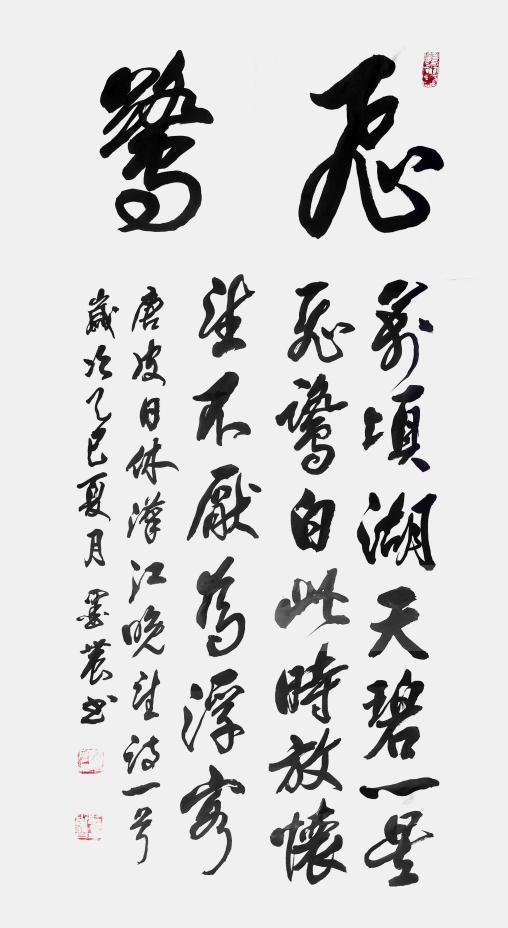 飛鷺
萬頃湖天碧一星
飛鷺白此時放懷
望不厭為浮客
唐皮日休漢江晚望诗一首
歲次乙巳夏月 墨農书